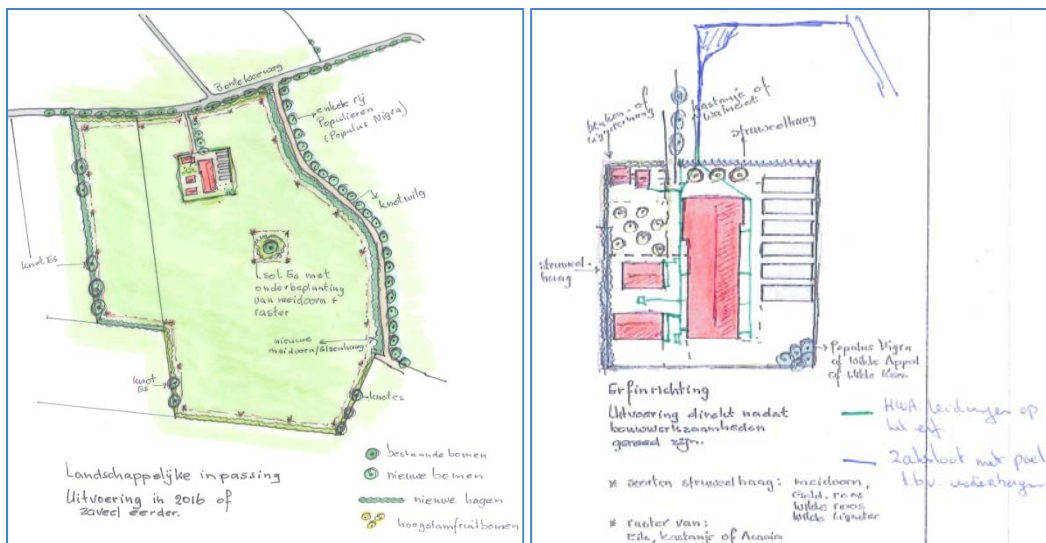 Bentekoeweg
enkele rij
Populieren
(Populus Nigra)
knotwilg
knot Es
sol. Es met
onderbeplanting
van meidoorn +
raster
nieuwe
meidoorn/Elzenhaag
knot
Es
knotes
Landschappelijke inpassing
Uitvoering in 2016 of
zoveel eerder.
bestaande bomen
nieuwe bomen
nieuwe hagen
hoogstamfruitbomen
beuken- of
ligusterhaag
kastanje of
walnoot
struweelhaag
struweel-
haag
Populus Nigra
of Wilde Appel
of Wilde Kers.
Erfinrichting
Uitvoering direkt nadat
bouwwerkzaamheden
gereed zijn.
HWA leidingen op
het erf
Zaksloot met poel
t.b.v.
* soorten struweelhaag: Meidoorn,
roos
Wilde roos
Wilde Liguster
* raster van:
Eik, Kastanje of Acacia